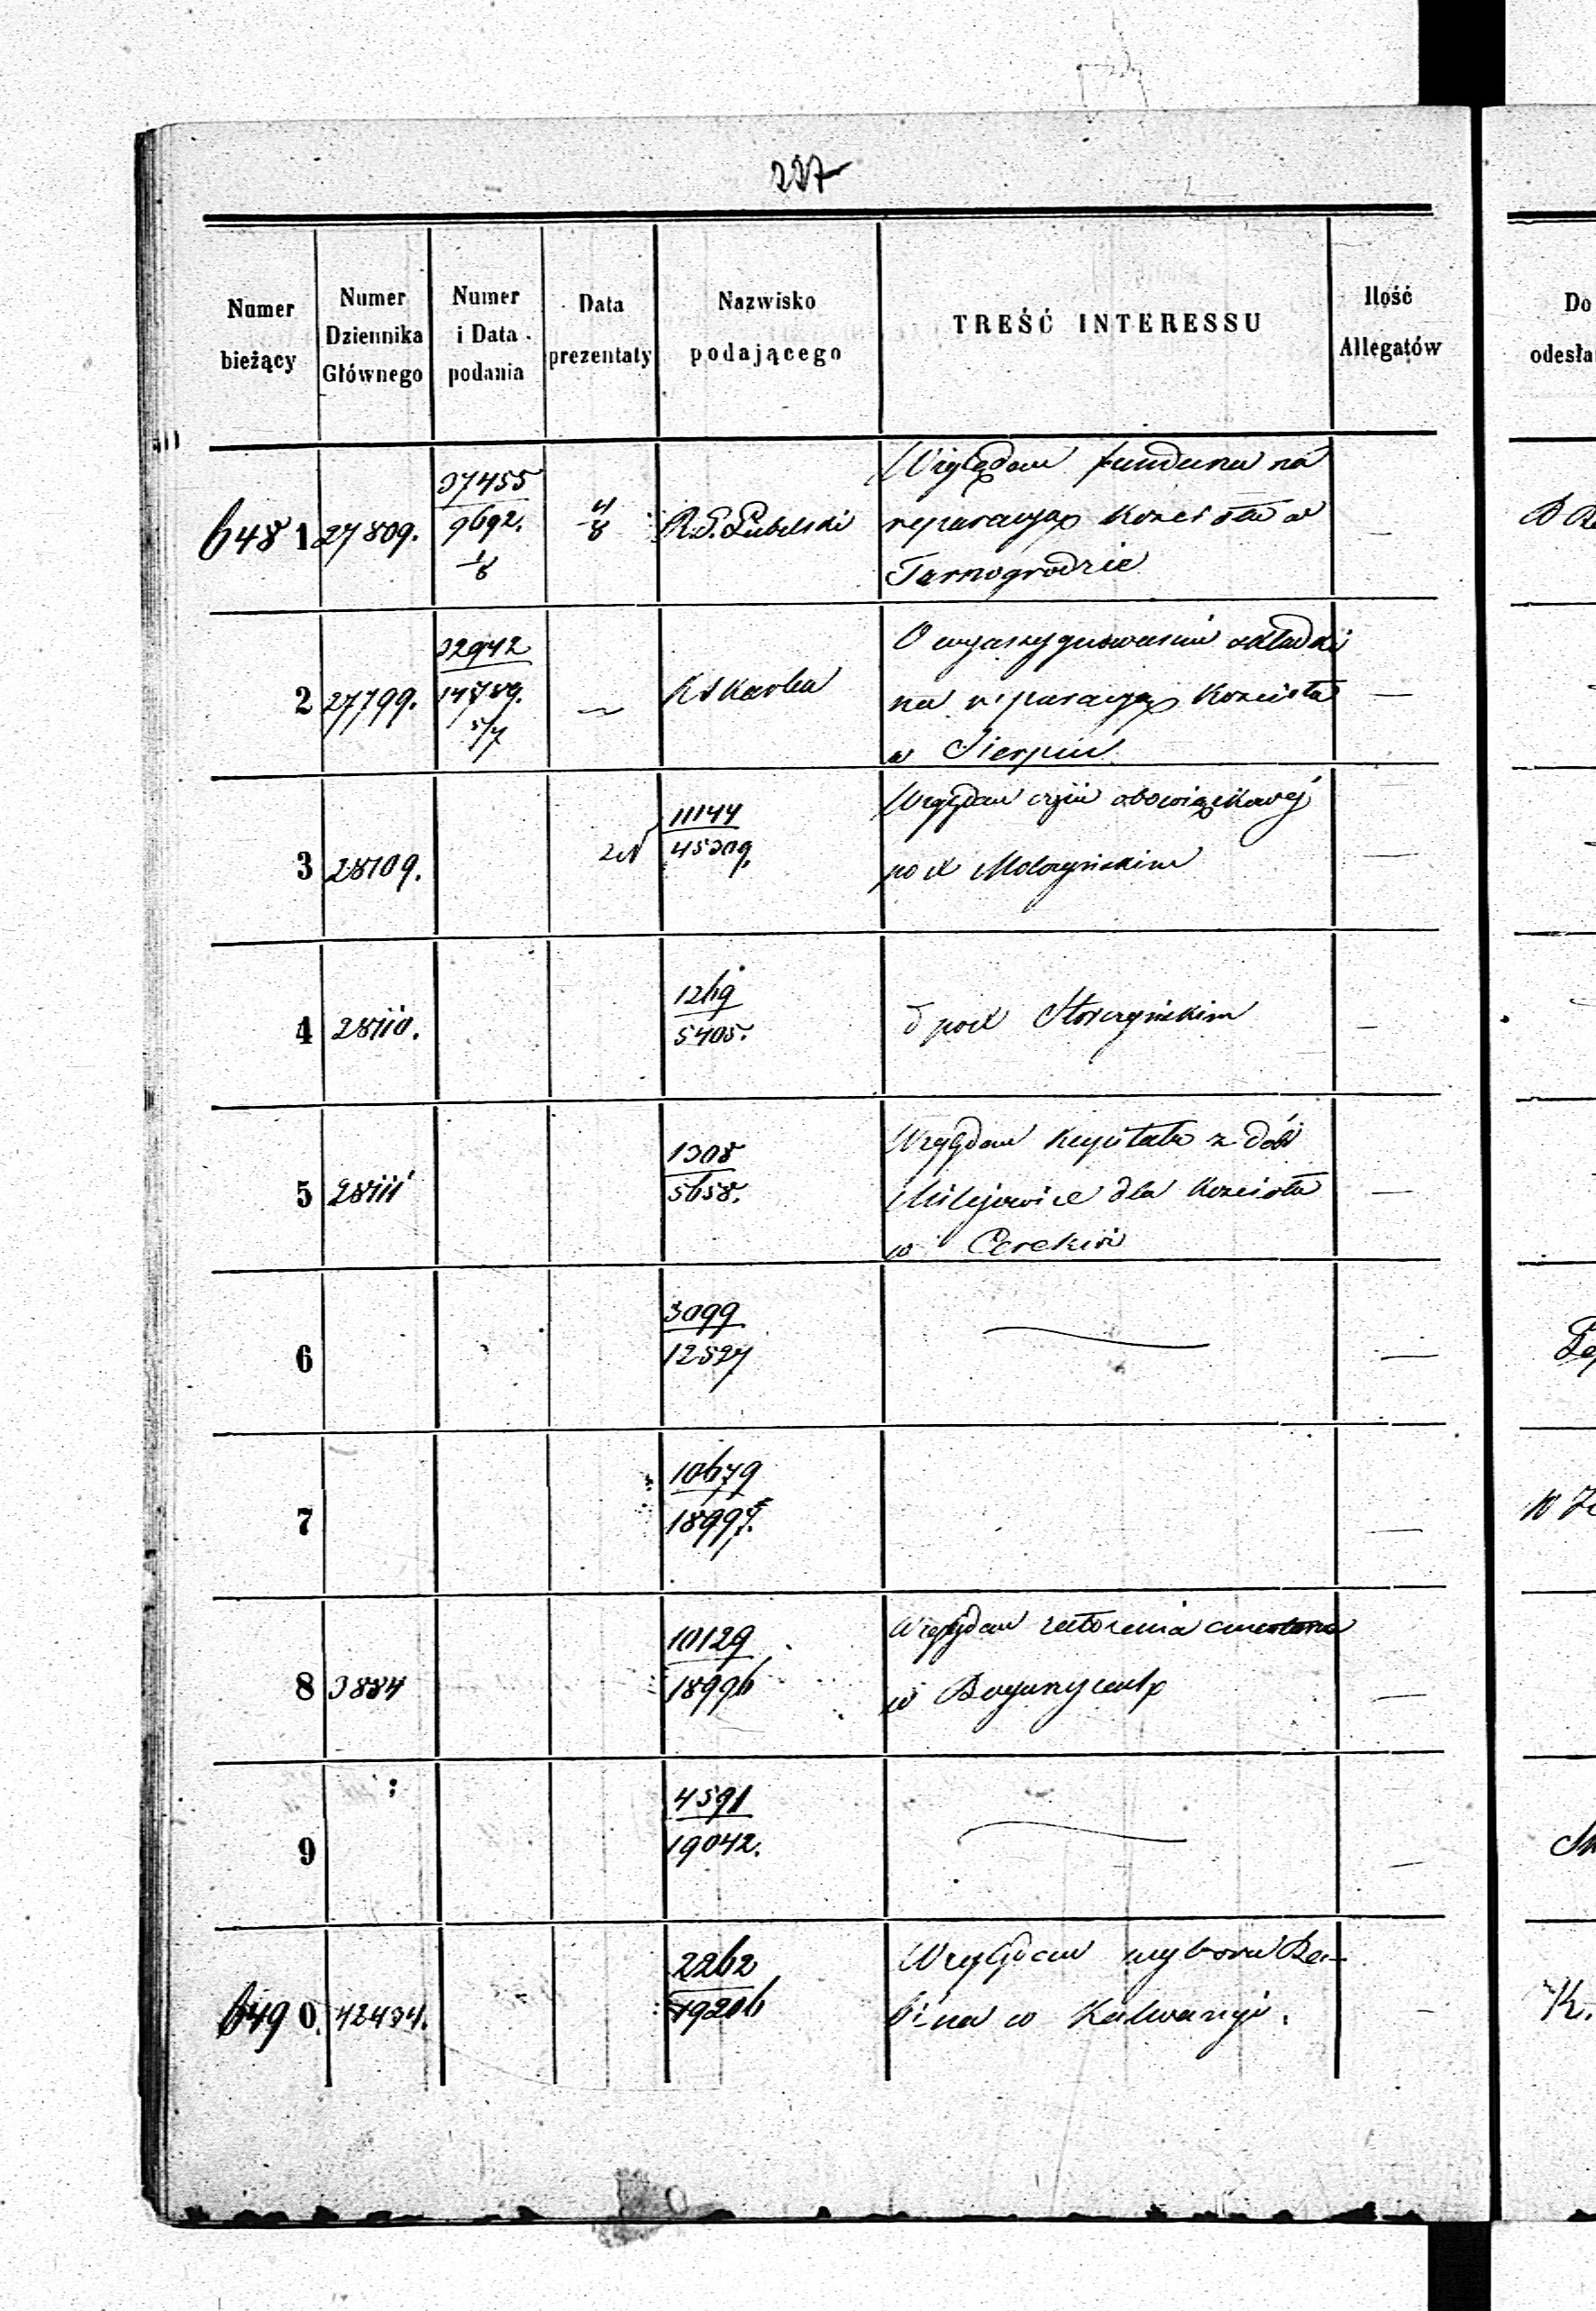 227
Numer bieżący
Numer Dziennika Głównego
Numer i Data podania
Data prezentaty
Nazwisko podającego
TREŚĆ INTERESSU
Ilość Allegatów
Do
odesła
6481 27809. 37455 / 9692. 1/8 4/8 R. G. Lubelski
Względem funduszu na
reparacyą Kościoła w
Tarnogrodzie
2 27799. 32942 / 14789. 5/7
O wyasygnowaniu składki
na reparacyą Kościoła
w Sierpcu
3 28109. 11144 / 45309.
Względem obowiązkowej
pod
4 28110. 1269 / 5405.
d pod
5 28111 1308 / 5658.
Względem Kapitału z dóbr
Milejowice dla Kościoła
w Cerekwi
6 3099 / 12527
7 10679 / 18997.
8 3884 10129 / 18996
Względem założenia cmentarza
w
9 4591 / 19042.
6490. 42434. 2262 / 19206
Względem wyboru Ra-
bina w Kalwaryi.